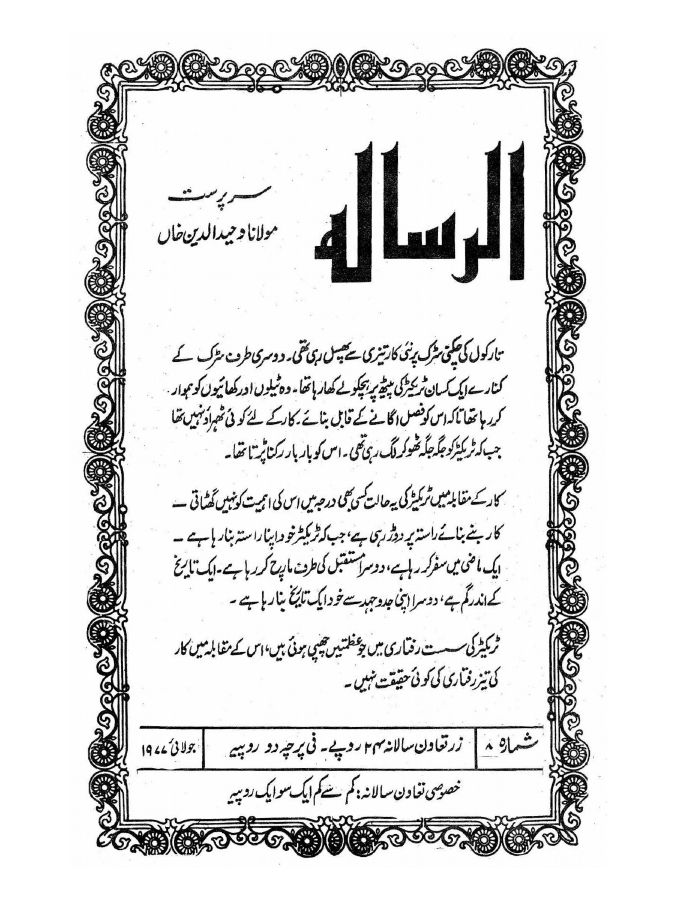 الرساله
سرپرست
مولانا وحیدالدین خاں
تارکول کی چکنی سڑک پر نئی کار تیزی سے پھسل رہی تھی۔ دوسری طرف سڑک کے
کنارے ایک کسان ٹریکٹر کی پیٹھ پر ہچکولے کھا رہا تھا۔ وہ ٹیلوں اور کھائیوں کو ہموار
کر رہا تھا تاکہ اس کو فصل اگانے کے قابل بنائے۔ کار کے لئے کوئی ٹھہراؤ نہیں تھا
جب کہ ٹریکٹر کو جگہ جگہ ٹھوکر لگ رہی تھی۔ اس کو بار بار رکنا پڑتا تھا۔
کار کے مقابلہ میں ٹریکٹر کی یہ حالت کسی بھی درجہ میں اس کی اہمیت کو نہیں گھٹاتی —
کار بنے بنائے راستہ پر دوڑ رہی ہے، جب کہ ٹریکٹر خود اپنا راستہ بنا رہا ہے —
ایک ماضی میں سفر کر رہا ہے، دوسرا مستقبل کی طرف مارچ کر رہا ہے۔ ایک تاریخ
کے اندر گم ہے، دوسرا اپنی جدوجہد سے خود ایک تاریخ بنا رہا ہے ۔
ٹریکٹر کی سست رفتاری میں جو عظمتیں چھپی ہوئی ہیں، اس کے مقابلہ میں کار
کی تیز رفتاری کی کوئی حقیقت نہیں ۔
شمارہ ۸
زر تعاون سالانہ ۲۴ روپے۔ فی پرچہ دو روپیہ
جولائی ۱۹۷۷
خصوصی تعاون سالانہ: کم سے کم ایک سو ایک روپیہ